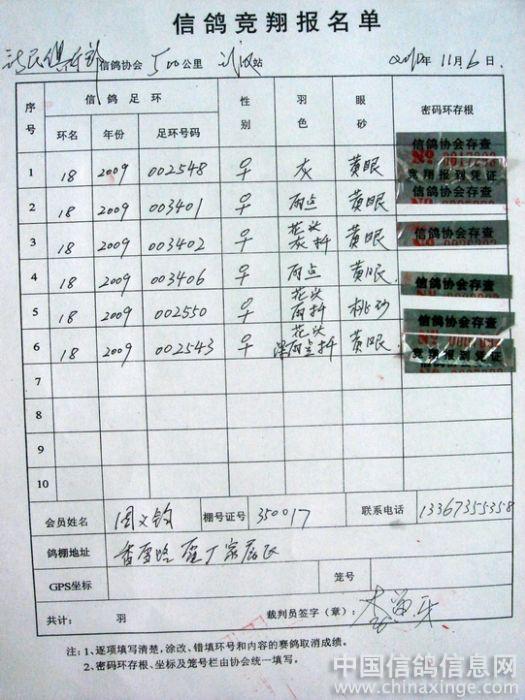 信鸽竞翔报名单
信鸽协会 500公里 站 11月6日
序号 信鸽足环 性别 羽色 眼砂 密码环存根
环名 年份 足环号码
信鸽协会存查
1 18 2009 002548 ♀ 灰 黄眼
竞翔报到凭证
信鸽协会存查
2 18 2009 003401 ♀ 雨点 黄眼
3 18 2009 003402 ♀ 花头灰 黄眼 信鸽协会存查
4 18 2009 003406 ♀ 雨点 黄眼 信鸽协会存查
5 18 2009 002550 ♀ 花头雨 桃砂 信鸽协会存查
6 18 2009 002543 ♀ 花头 雨点 黄眼 竞翔报到凭证
信鸽协会存查
7
8
9
10
会员姓名 周文钧 棚号证号 350017 联系电话 13367355358
鸽棚地址
GPS坐标 笼号
共计： 羽 裁判员签字（章）：
注：1、逐项填写清楚，涂改、错填环号和内容的赛鸽取消成绩。
2、密码环存根、坐标及笼号栏由协会统一填写。
中国信鸽信息网
www.chinaxinge.com